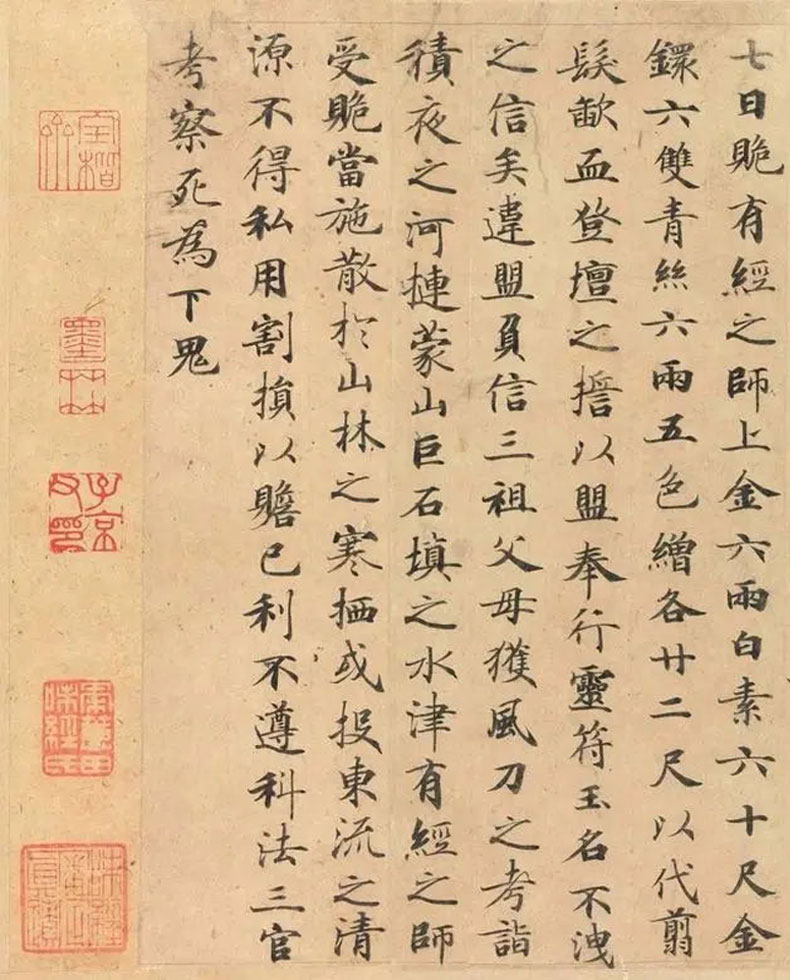 七日䞈有經之師上金六兩白素六十尺金
鐶六雙青絲六兩五色繒各廿二尺以代翦
髮歃血登壇之誓以盟奉行靈符玉名不洩
之信矣違盟負信三祖父母獲風刀之考詣
積夜之河摙蒙山巨石填之水津有經之師
受䞈當施散於山林之寒栖或投東流之清
源不得私用割損以贍己利不遵科法三官
考察死為下鬼
墨林
子京父印